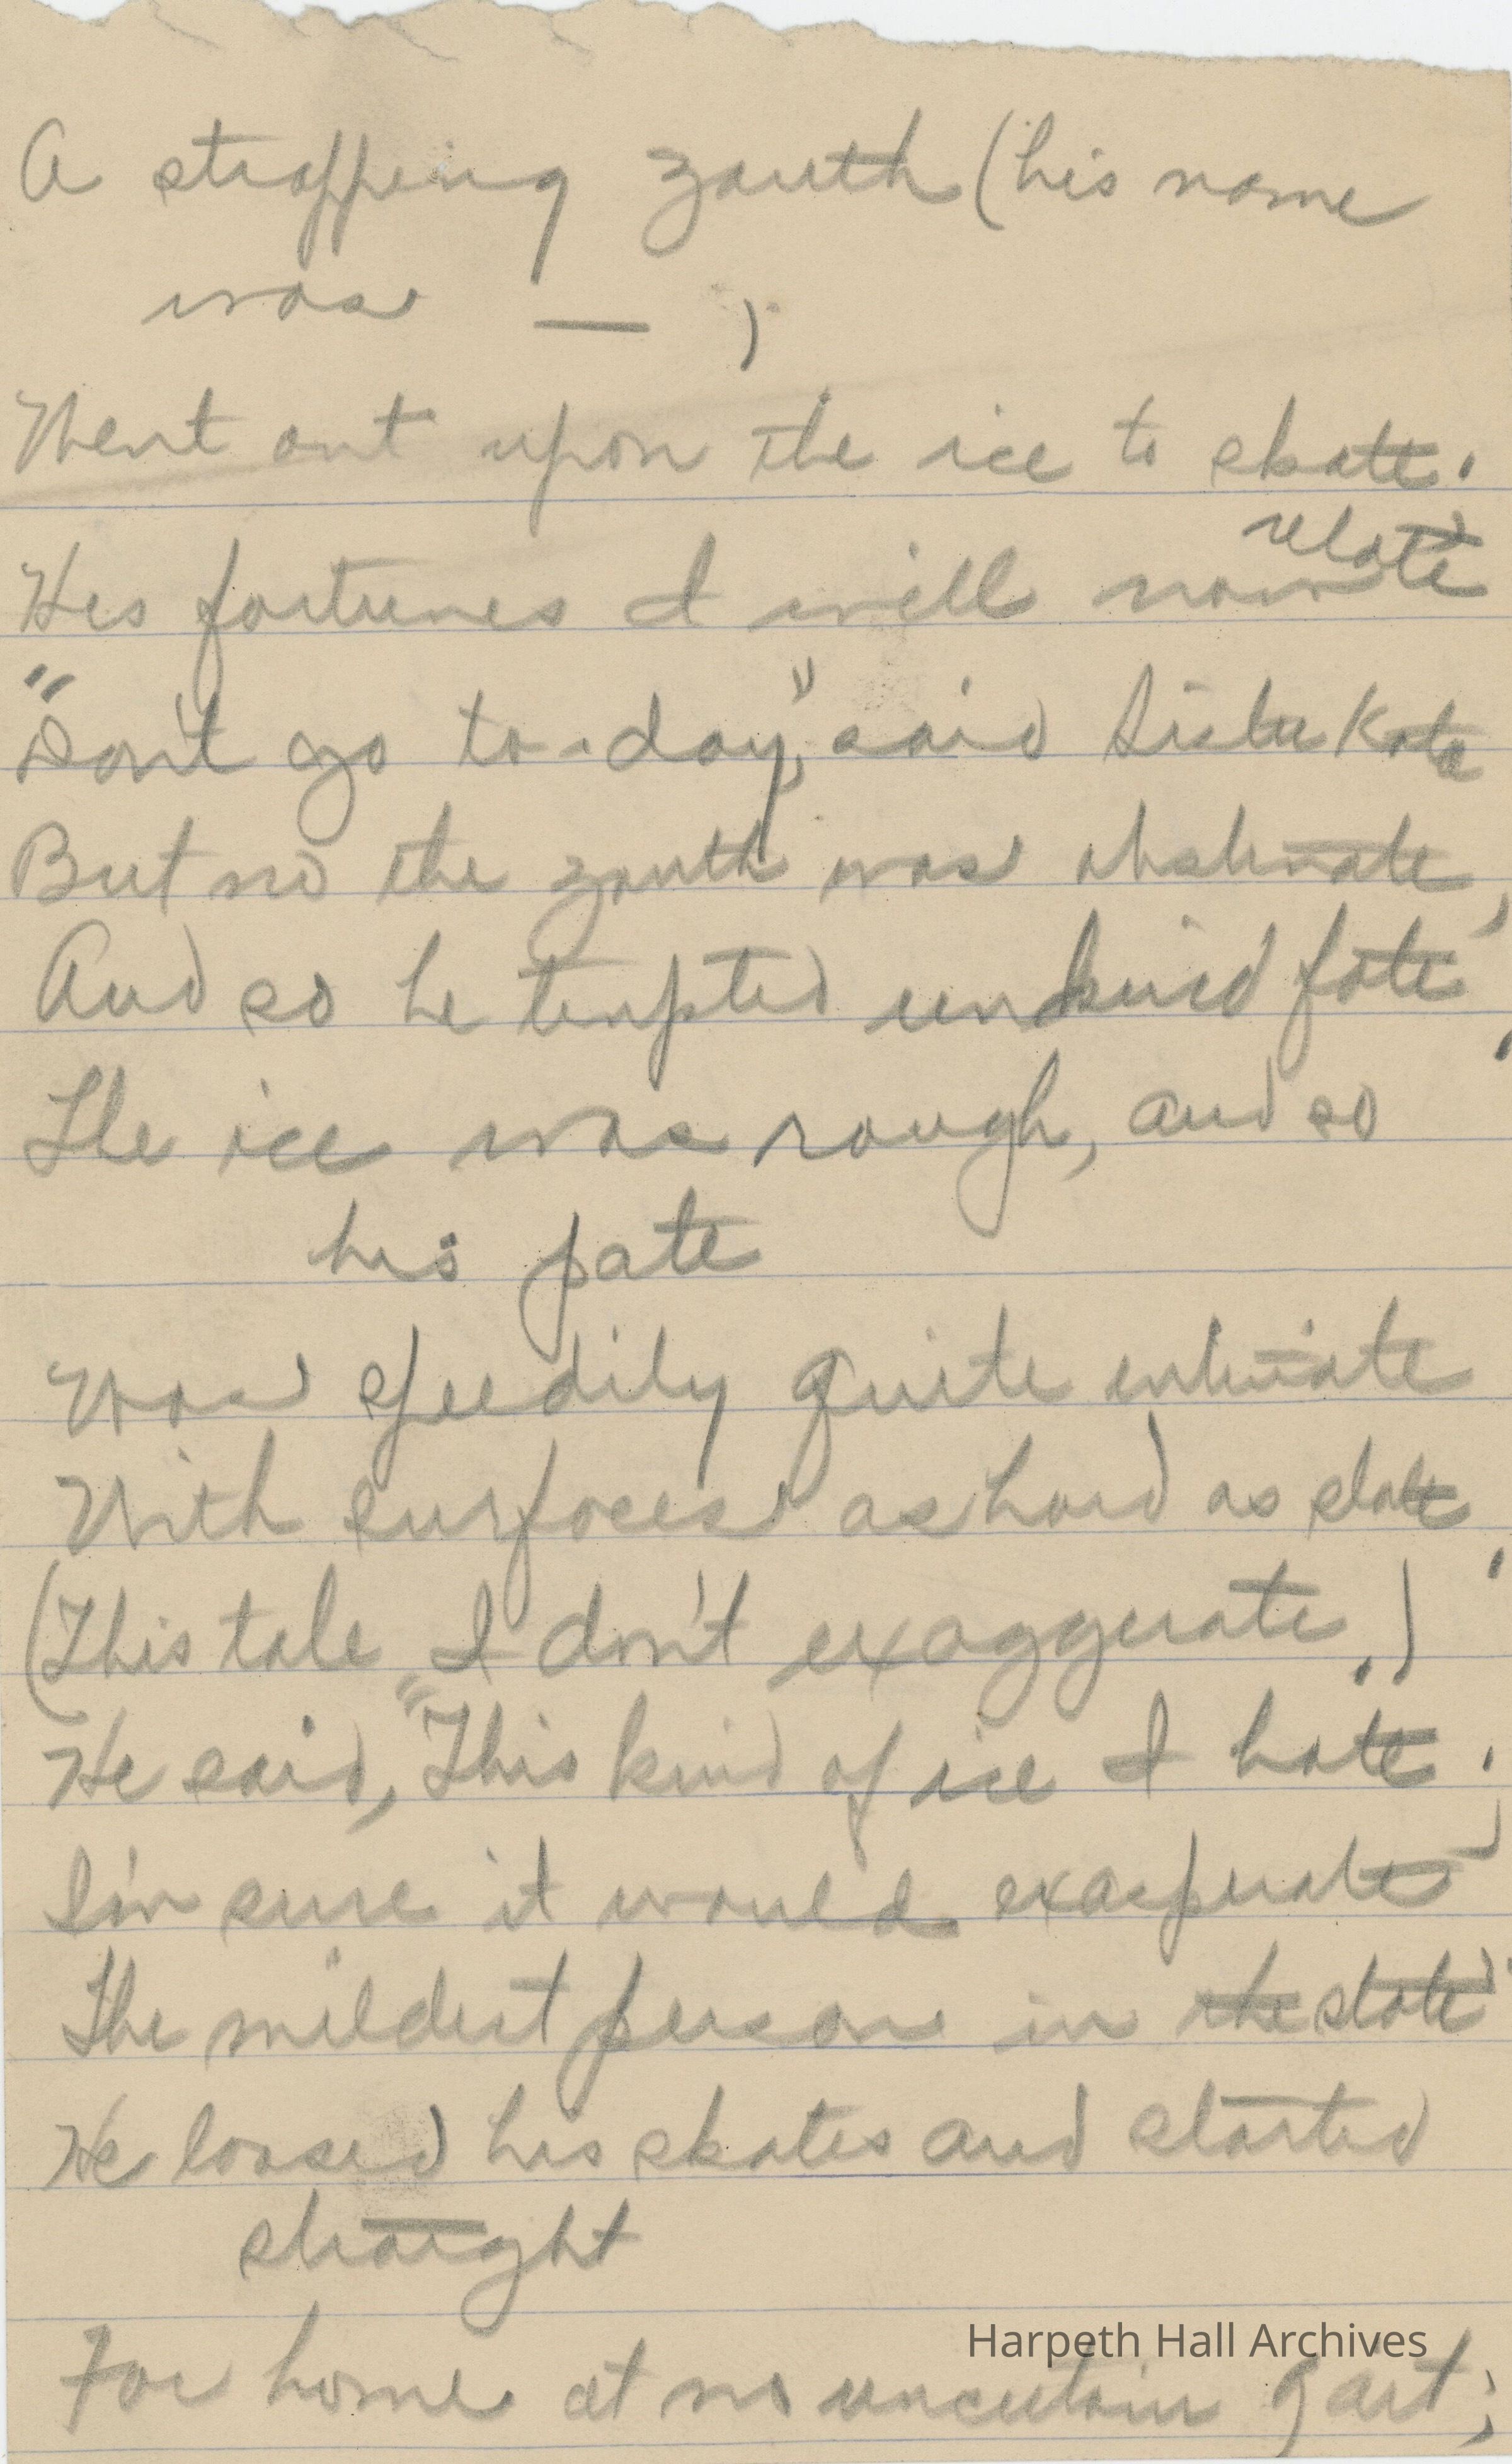 A strapping youth (his name
was — )
Went out upon the ice to skate.
His fortunes I will now relate
"Don't go to-day," said Sister Kate
But no the youth was obstinate,
And so he tempted unkind fate.
The ice was rough, and so
his pate
Was speedily quite intimate
With surfaces as hard as slate.
(This tale I don't exaggerate.)
He said, "This kind of ice I hate;
I'm sure it would exasperate
The mildest person in the state"
He loosed his skates and started
straight
For home at no uncertain gait;
Harpeth Hall Archives